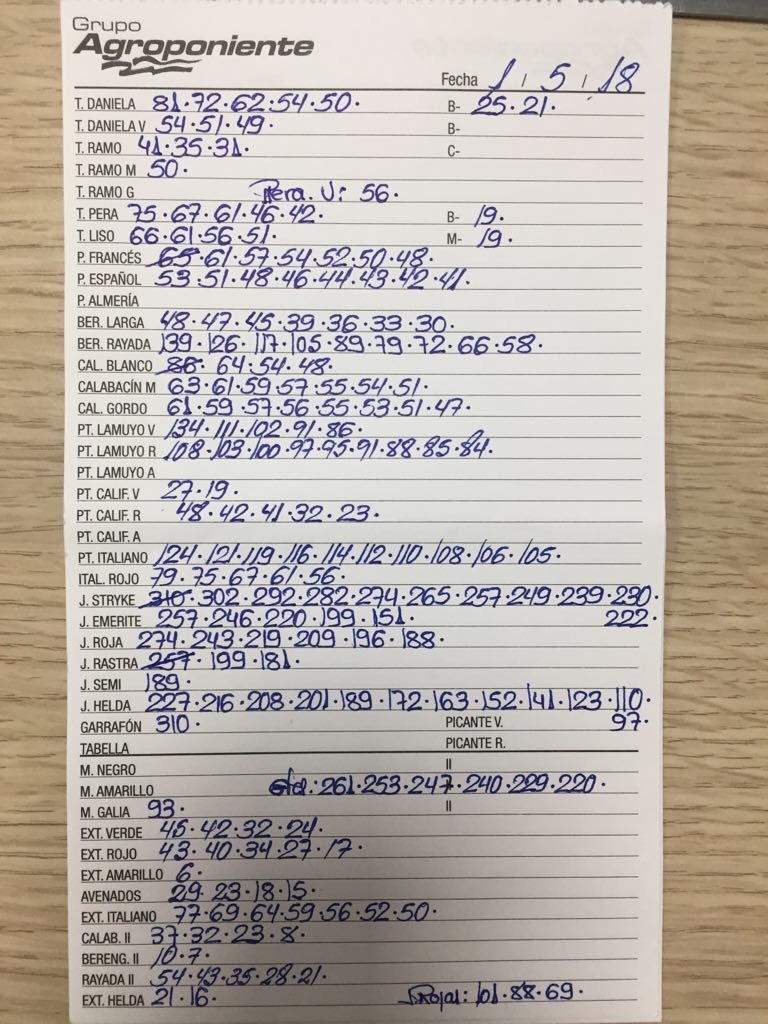 Grupo
Agroponiente
Fecha 1 / 5 / 18
T. DANIELA 81·72·62·54·50· B- 25·21·
T. DANIELA V 54·51·49· B-
T. RAMO 41·35·31· C-
T. RAMO M 50·
T. RAMO G Pera. V: 56·
T. PERA 75·67·61·46·42· B- 19·
T. LISO 66·61·56·51· M- 19·
P. FRANCÉS 65·61·57·54·52·50·48·
P. ESPAÑOL 53·51·48·46·44·43·42·41·
P. ALMERÍA
BER. LARGA 48·47·45·39·36·33·30·
BER. RAYADA 139·126·117·105·89·79·72·66·58·
CAL. BLANCO 86·64·54·48·
CALABACÍN M 63·61·59·57·55·54·51·
CAL. GORDO 61·59·57·56·55·53·51·47·
PT. LAMUYO V 134·111·102·91·86·
PT. LAMUYO R 108·103·100·97·95·91·88·85·84·
PT. LAMUYO A
PT. CALIF. V 27·19·
PT. CALIF. R 48·42·41·32·23·
PT. CALIF. A
PT. ITALIANO 124·121·119·116·114·112·110·108·106·105·
ITAL. ROJO 79·75·67·61·56·
J. STRYKE 310·302·292·282·274·265·257·249·239·230·
J. EMERITE 257·246·220·199·151· 222·
J. ROJA 274·243·219·209·196·188·
J. RASTRA 257·199·181·
J. SEMI 189·
J. HELDA 227·216·208·201·189·172·163·152·141·123·110·
GARRAFÓN 310· PICANTE V. 97·
TABELLA PICANTE R.
M. NEGRO II
M. AMARILLO 261·253·247·240·229·220·
M. GALIA 93· II
EXT. VERDE 45·42·32·24·
EXT. ROJO 43·40·34·27·17·
EXT. AMARILLO 6·
AVENADOS 29·23·18·15·
EXT. ITALIANO 77·69·64·59·56·52·50·
CALAB. II 37·32·23·8·
BERENG. II 10·7·
RAYADA II 54·43·35·28·21·
EXT. HELDA 21·16· Roja: 101·88·69·